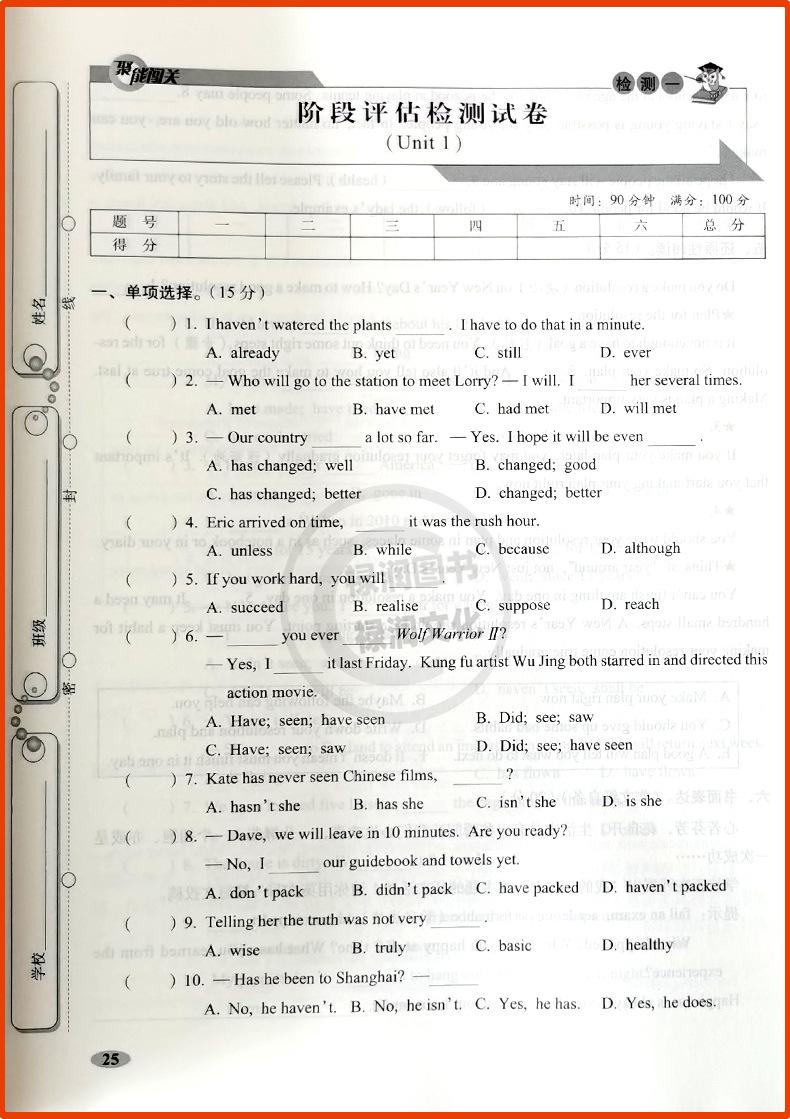 聚能闯关
检测一
阶段评估检测试卷
(Unit 1)
时间：90分钟 满分：100分
题 号 一 二 三 四 五 六 总 分
得 分
一、单项选择。(15分)
( ) 1. I haven't watered the plants ______. I have to do that in a minute.
A. already B. yet C. still D. ever
( ) 2. — Who will go to the station to meet Lorry? — I will. I ______ her several times.
A. met B. have met C. had met D. will met
( ) 3. — Our country ______ a lot so far. — Yes. I hope it will be even ______.
A. has changed; well B. changed; good
C. has changed; better D. changed; better
( ) 4. Eric arrived on time, ______ it was the rush hour.
A. unless B. while C. because D. although
( ) 5. If you work hard, you will ______.
A. succeed B. realise C. suppose D. reach
( ) 6. — ______ you ever ______ Wolf Warrior Ⅱ?
— Yes, I ______ it last Friday. Kung fu artist Wu Jing both starred in and directed this
action movie.
A. Have; seen; have seen B. Did; see; saw
C. Have; seen; saw D. Did; see; have seen
( ) 7. Kate has never seen Chinese films, ______?
A. hasn't she B. has she C. isn't she D. is she
( ) 8. — Dave, we will leave in 10 minutes. Are you ready?
— No, I ______ our guidebook and towels yet.
A. don't pack B. didn't pack C. have packed D. haven't packed
( ) 9. Telling her the truth was not very ______.
A. wise B. truly C. basic D. healthy
( ) 10. — Has he been to Shanghai? — ______
A. No, he haven't. B. No, he isn't. C. Yes, he has. D. Yes, he does.
25
姓名
班级
学校
线
封
密
禄润图书
禄润文化